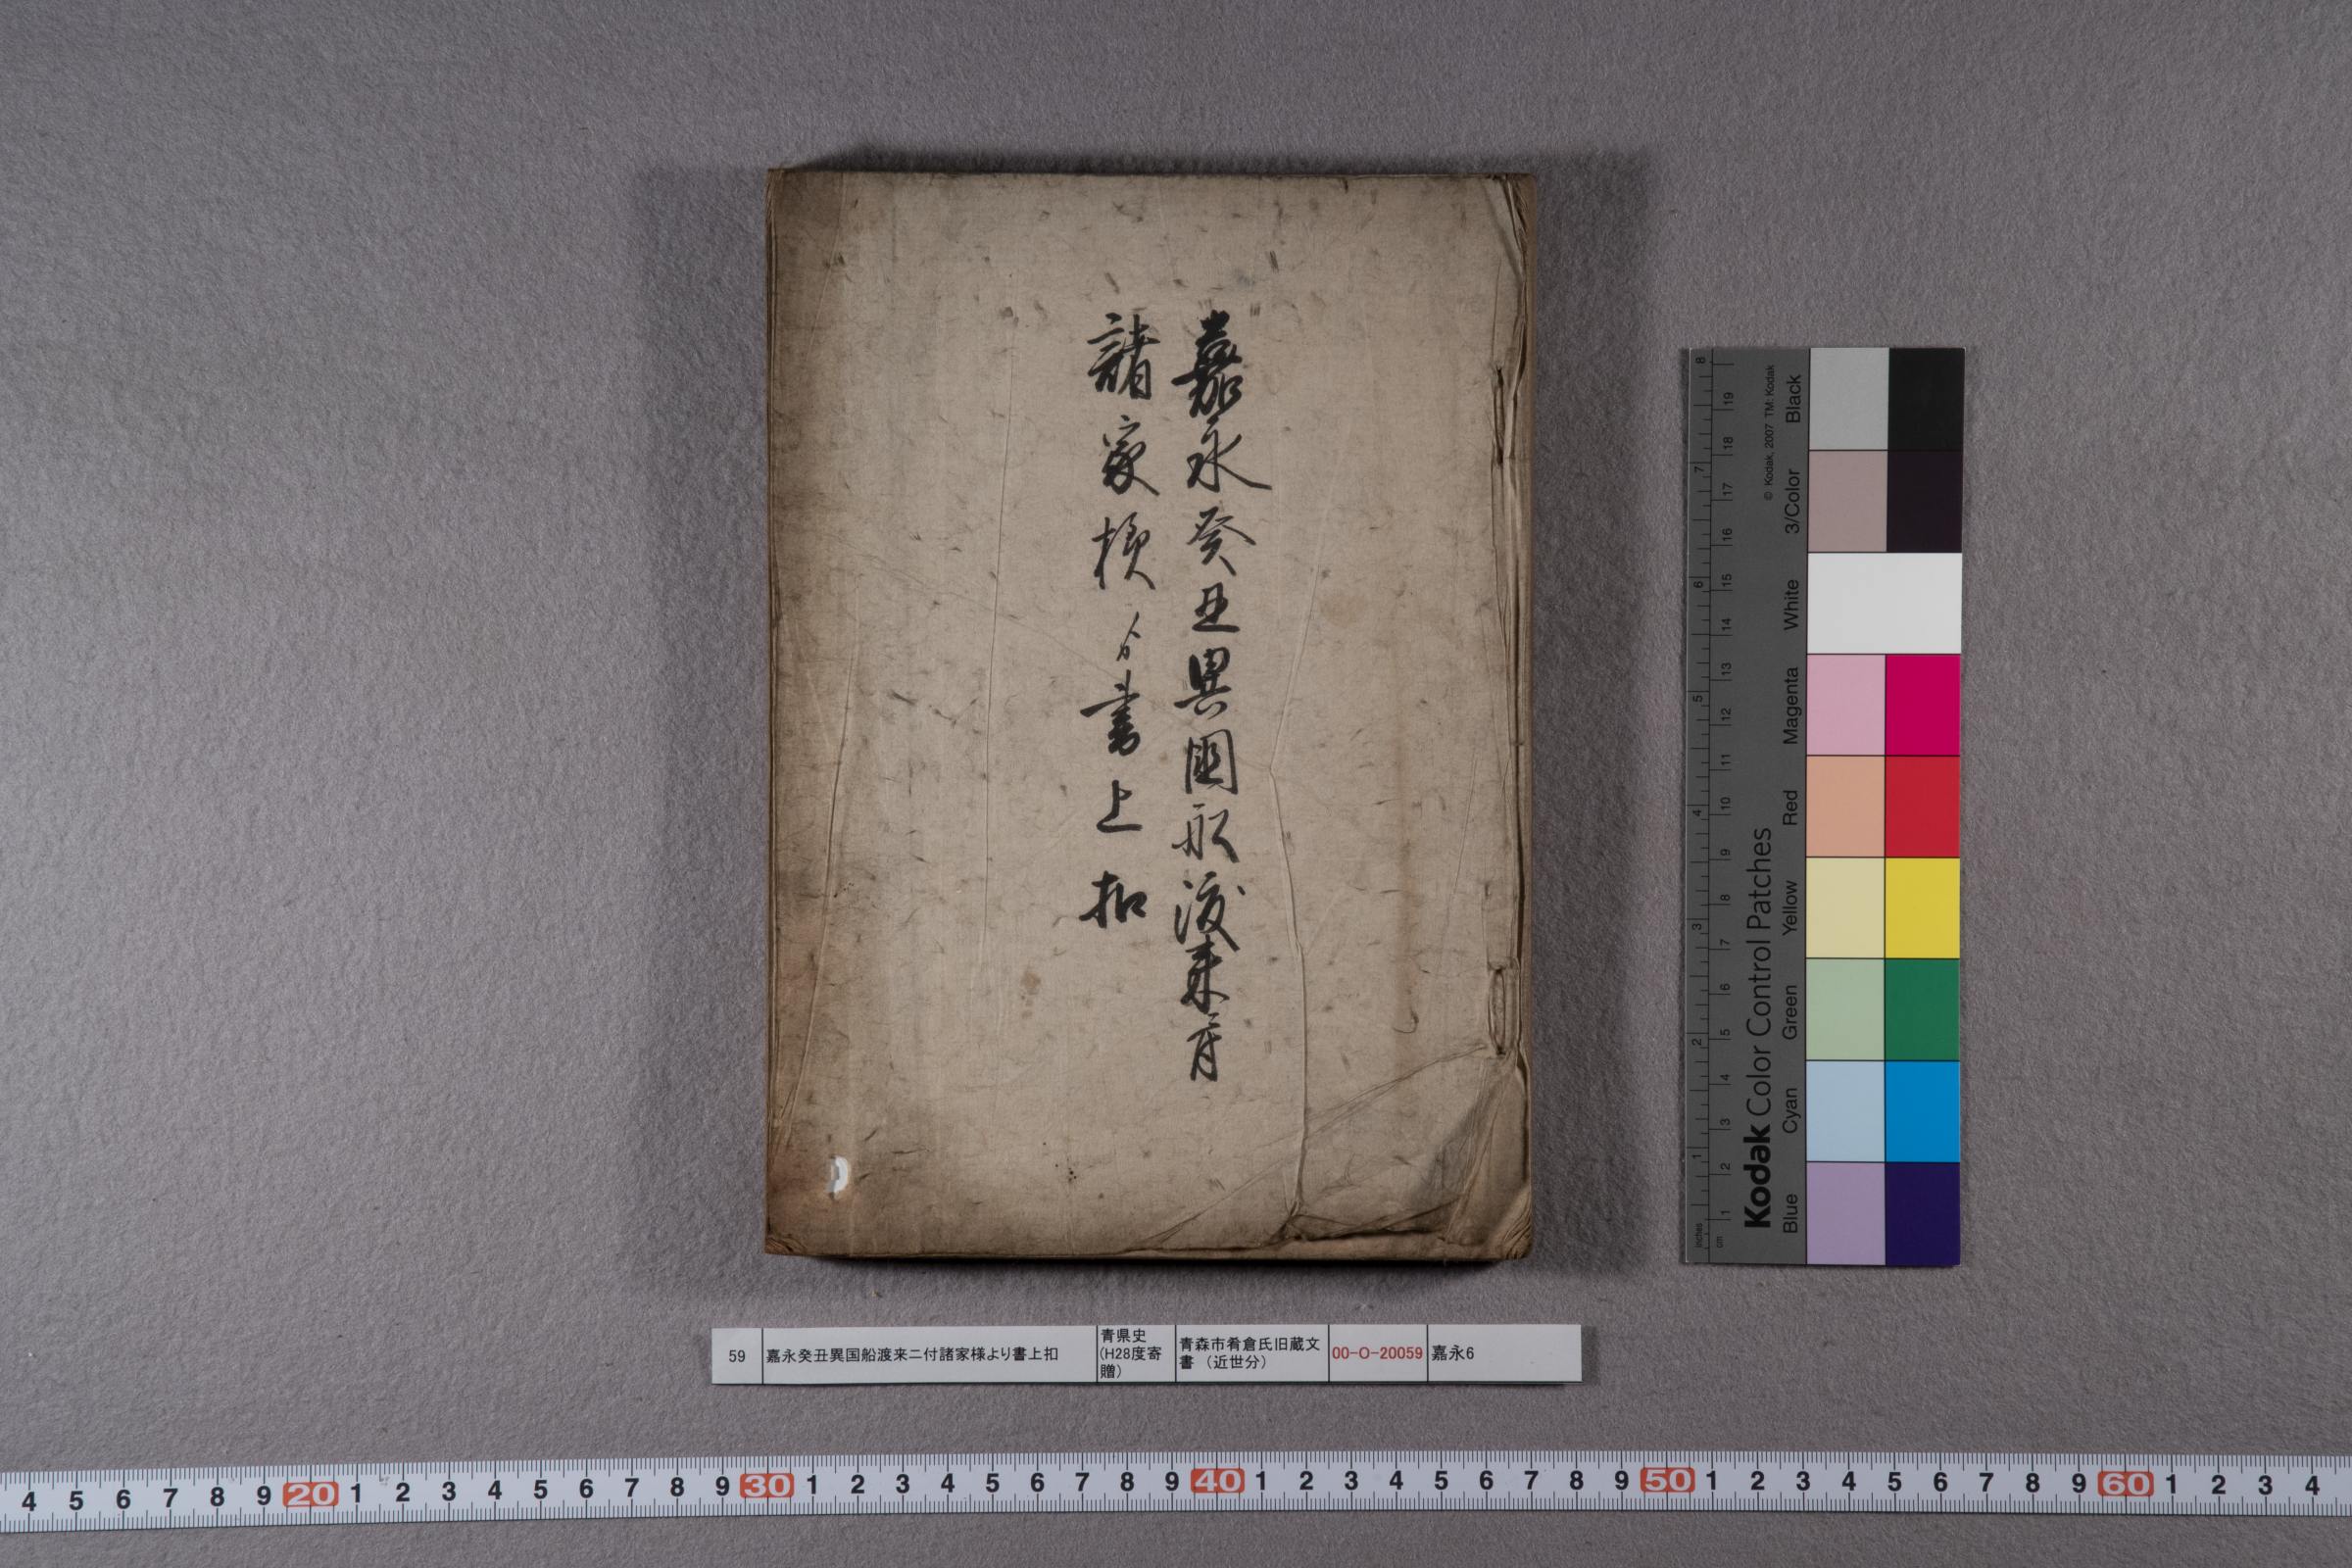 嘉永癸丑異國船渡来ニ付
諸家様ゟ書上扣
59
嘉永癸丑異国船渡来ニ付諸家様より書上扣
青県史
(H28度寄
贈)
青森市肴倉氏旧蔵文
書 (近世分)
00-O-20059
嘉永6
© Kodak, 2007 TM: Kodak
Kodak Color Control Patches
Blue Cyan Green Yellow Red Magenta White 3/Color Black
inches 1 2 3 4 5 6 7 8
cm 1 2 3 4 5 6 7 8 9 10 11 12 13 14 15 16 17 18 19
4 5 6 7 8 9 20 1 2 3 4 5 6 7 8 9 30 1 2 3 4 5 6 7 8 9 40 1 2 3 4 5 6 7 8 9 50 1 2 3 4 5 6 7 8 9 60 1 2 3 4